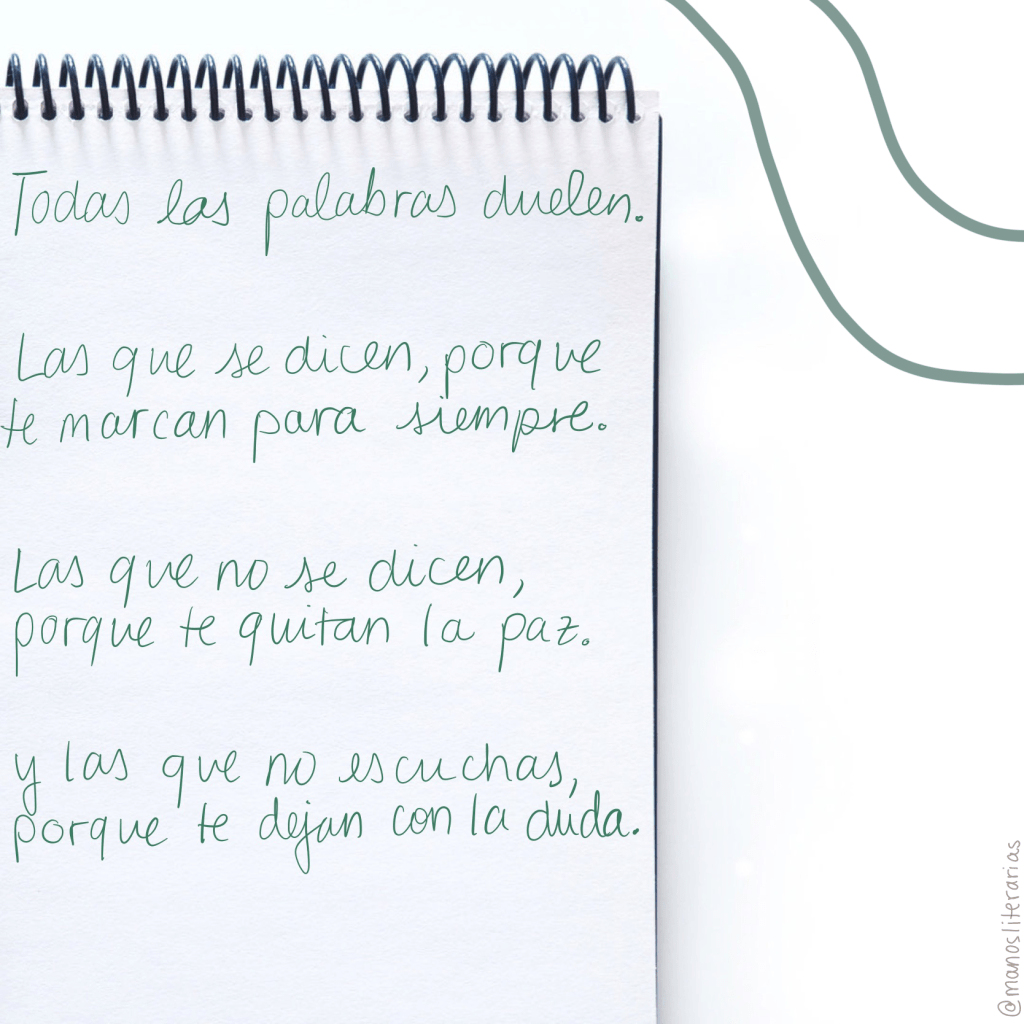 Todas las palabras duelen.
Las que se dicen, porque
te marcan para siempre.
Las que no se dicen,
porque te quitan la paz.
y las que no escuchas,
porque te dejan con la duda.
@manosliterarias